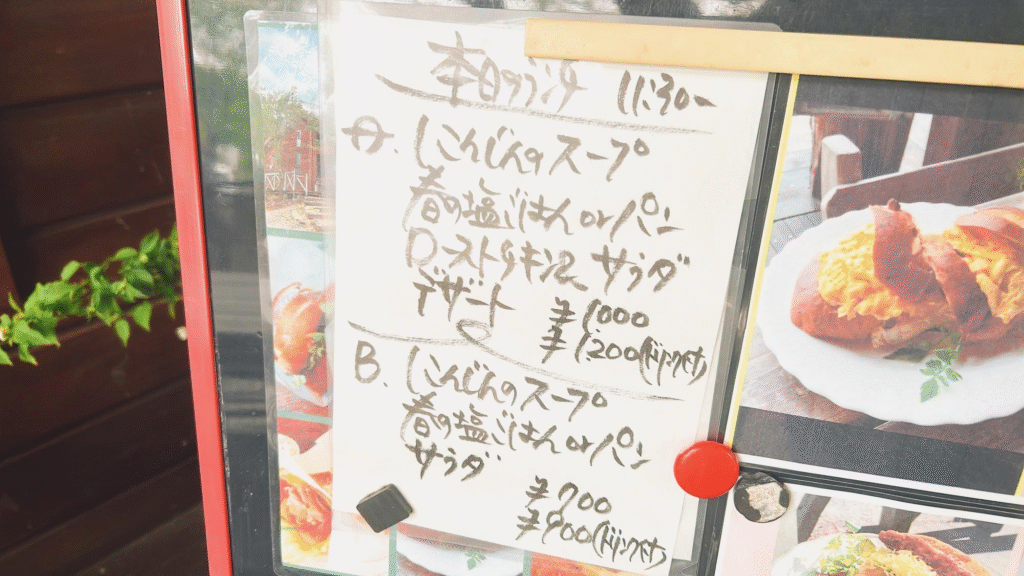 本日のランチ 11:30〜
A. にんじんのスープ
春の塩ごはん or パン
ローストチキンと サラダ
デザート ¥1,000
¥1,200(ドリンク付)
B. にんじんのスープ
春の塩ごはん or パン
サラダ
¥700
¥900(ドリンク付)